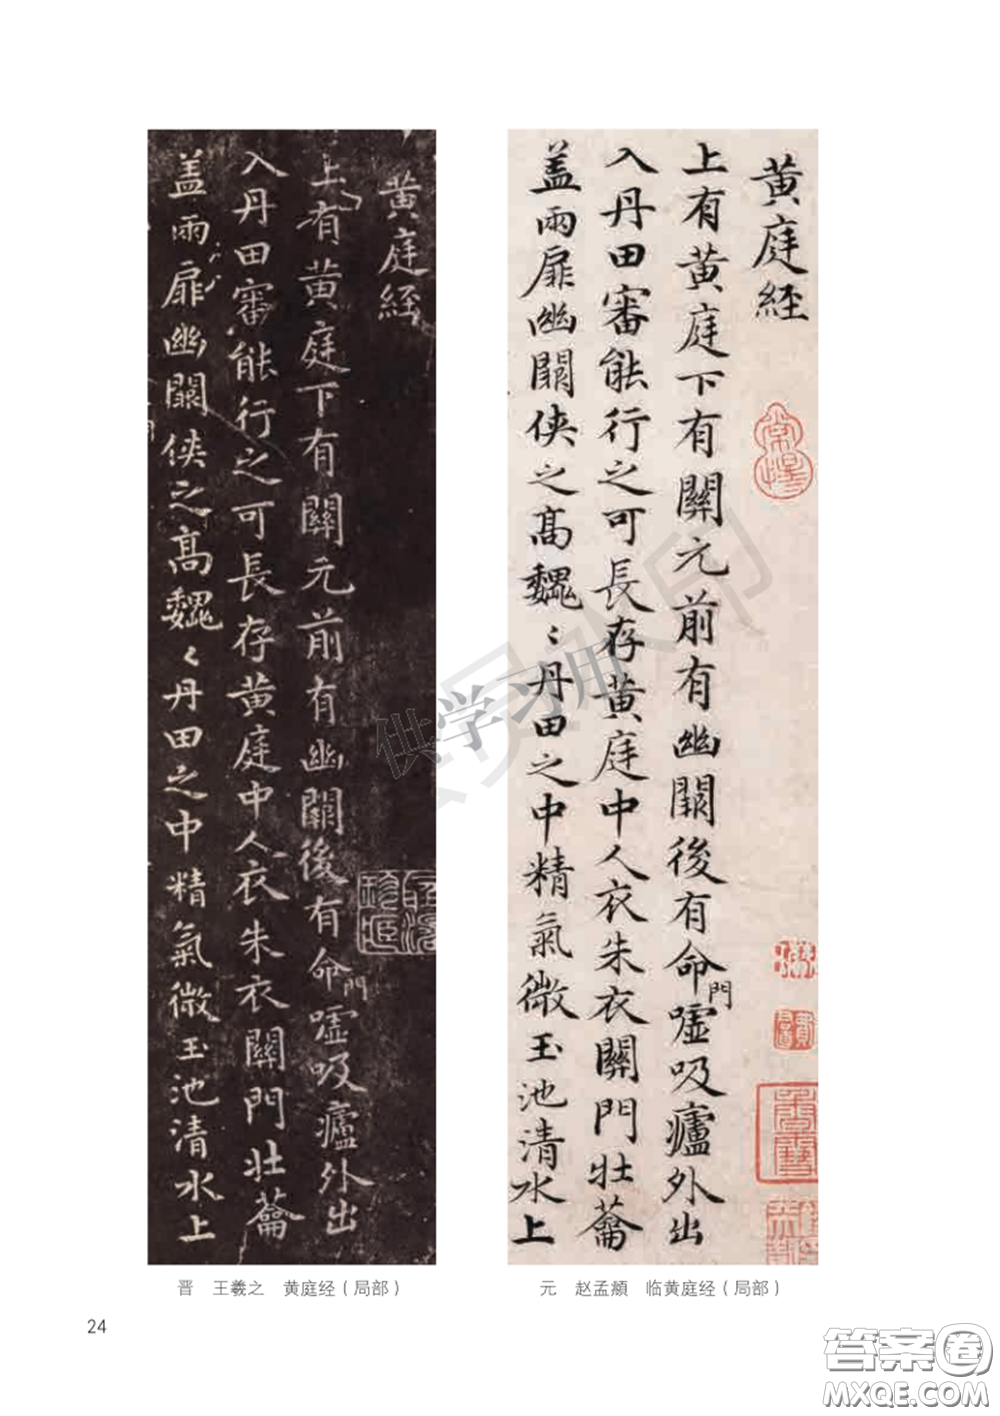 黄庭經
上有黄庭下有關元前有幽闕後有命門嘘吸廬外出
入丹田審能行之可長存黄庭中人衣朱衣關門壯蘥
盖兩扉幽闕侠之髙巍巍丹田之中精氣微玉池清水上
黄庭經
上有黄庭下有關元前有幽闕後有命門嘘吸廬外出
入丹田審能行之可長存黄庭中人衣朱衣關門壯蘥
盖兩扉幽闕侠之髙巍巍丹田之中精氣微玉池清水上
供学习用
晋 王羲之 黄庭经(局部)
元 赵孟頫 临黄庭经(局部)
24
答案圈
MXQE.COM